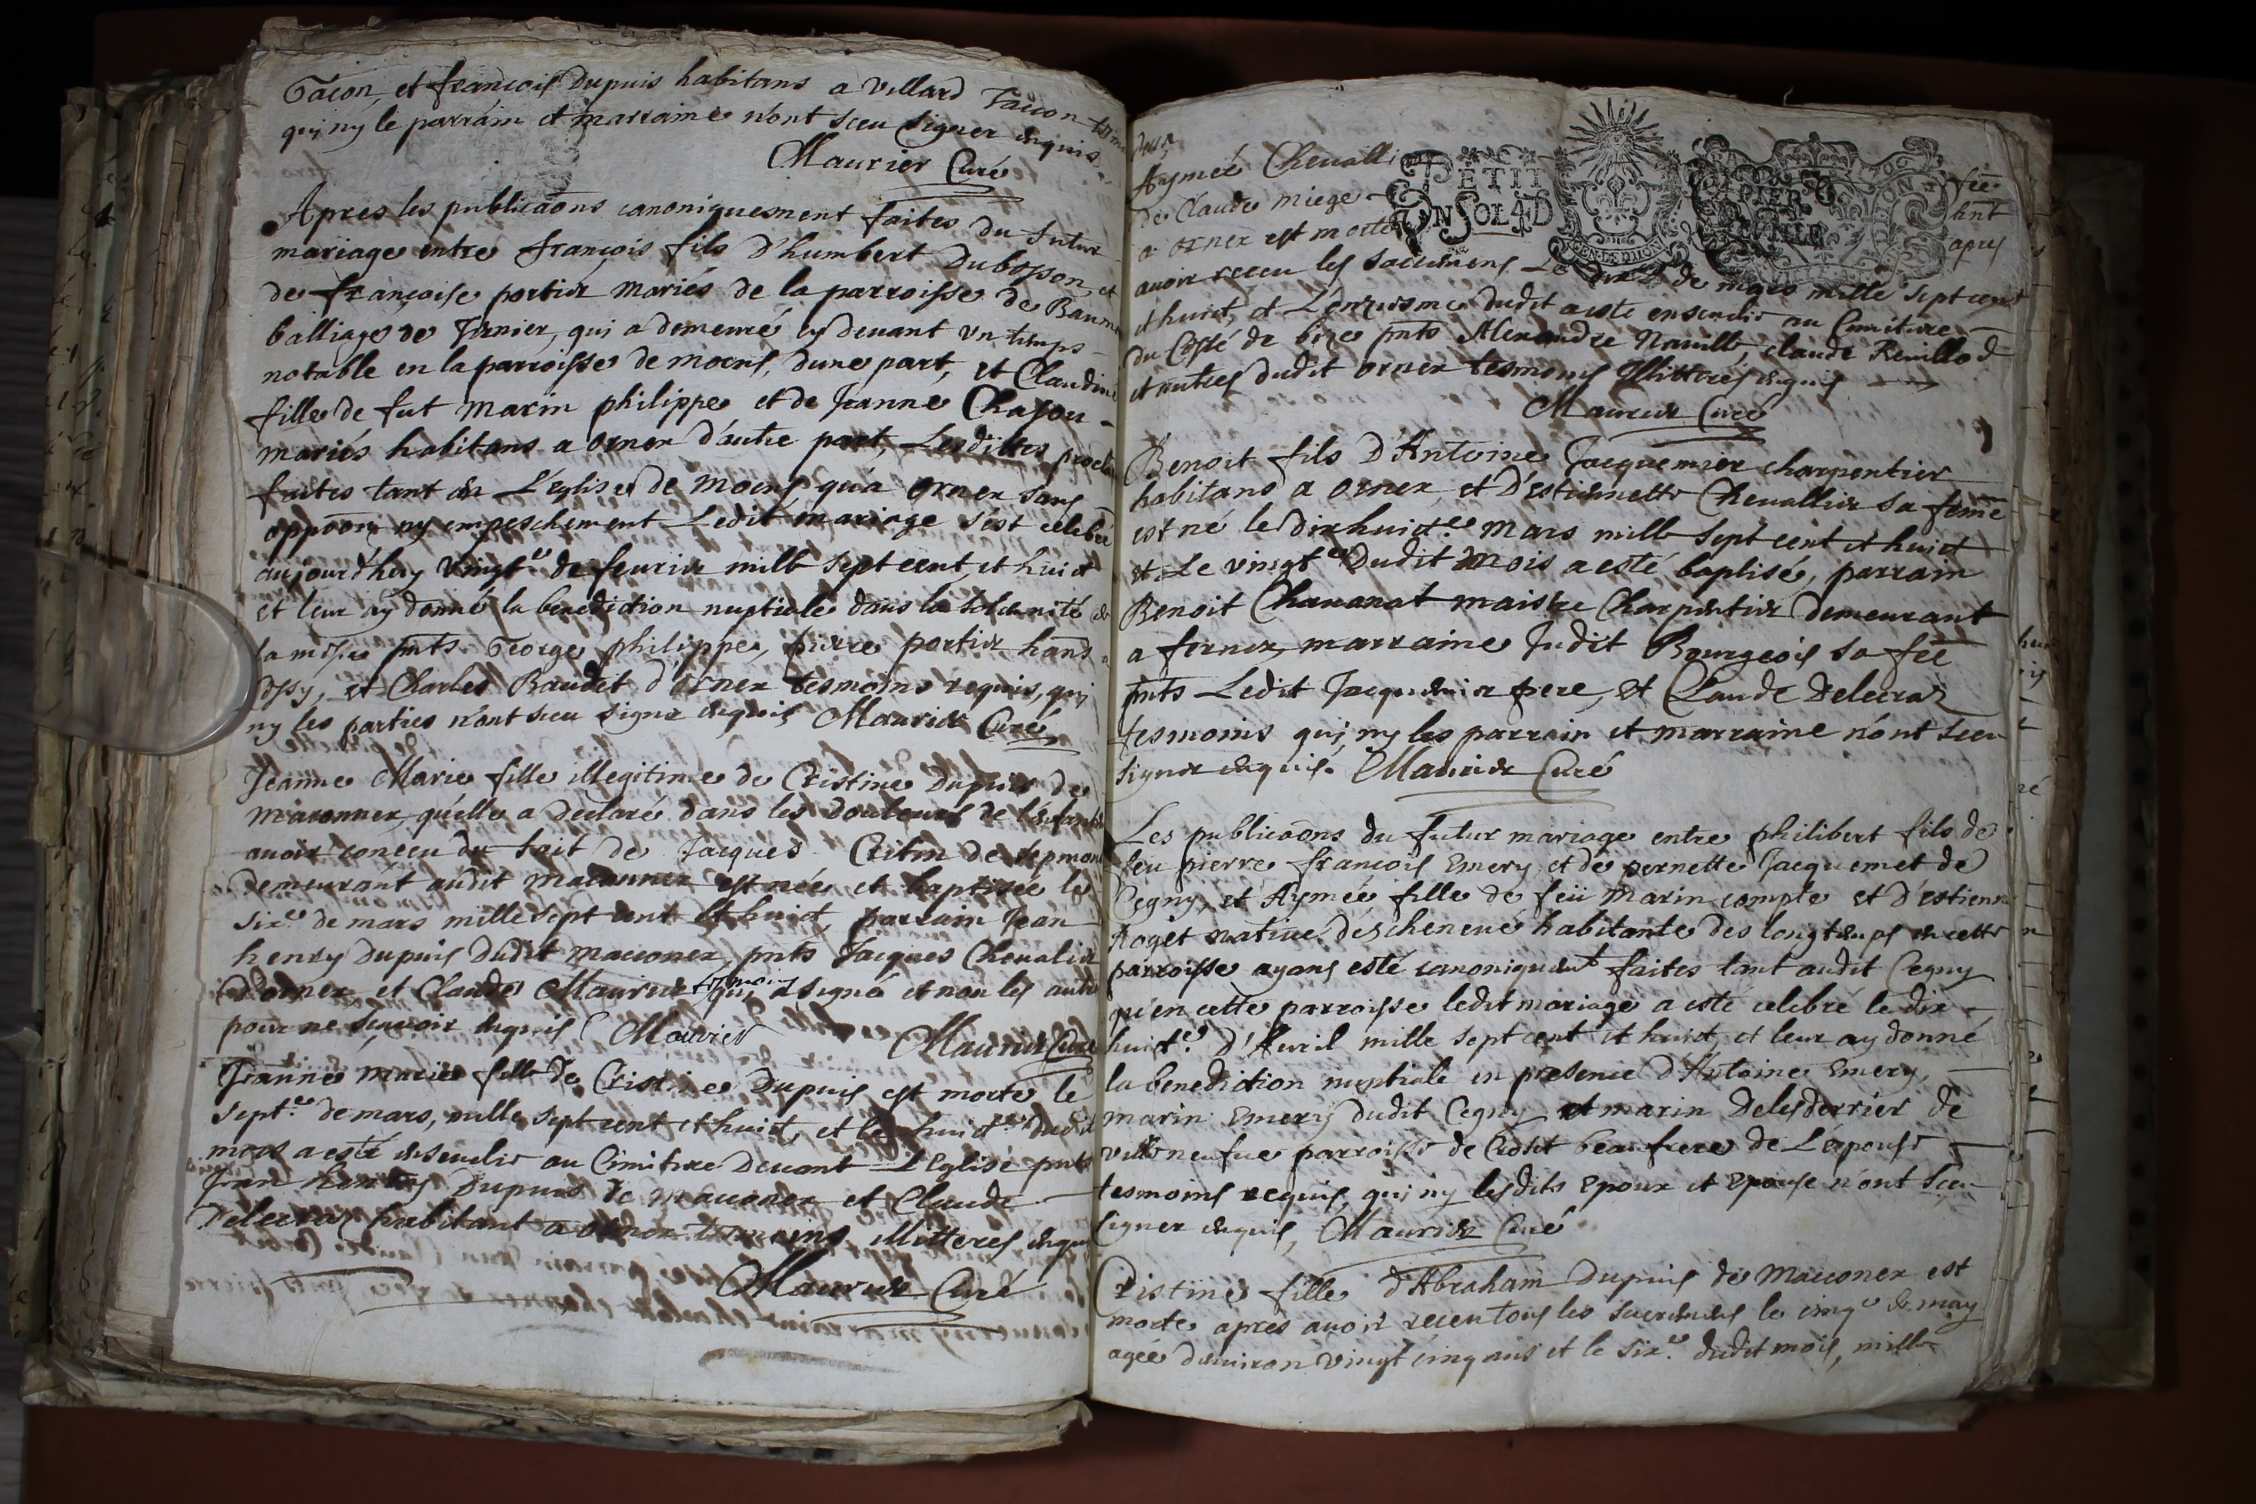 Tacon, et françois Dupuis habitans a villard Taccon
qui ny le parrain et marraine n'ont sceu signer enquis
Maurier Curé
Apres les publicaõns canoniquement faites du futur
mariage entre françois fils D'humbert Dubosson, et
de françoise portier mariés de la parroisse de
balliage de Ternier, qui a demeuré cy devant un temps
notable en la parroisse de moens, d'une part, et Claudine
fille de fut Marin philippe et de Jeanne
mariés habitans a orner d'autre part, Lesdittes
faites tant en L'Eglise de Moens qu'a orner sans
oppoõn ny empeschement Ledit mariage s'est celebré
aujourd'huy vingt.e de feurier mille sept cent, et huict
et leur ay donné la benediction nuptiale dans la solennité de
la messe pnts George philippe, pierre portier
et Charles Baudet d'orner tesmoins requis, qui
ny les parties n'ont sceu signer enquis Maurier Curé
Jeanne Marie fille illegitime de Cristine Dupuis de
maconnex, qu'elle a declaré dans les douleurs de
avoir conceu du fait de Jacques
demeurant audit maconnex est née, et baptisée le
six.e de mars mille sept cent et huict, parrain Jean
henry Dupuis dudit macconex, pnts Jacques Chevalier
D'orner et Claude Maurier tesmoins qui a signé et non les autres
pour ne sçavoir enquis Maurier Maurier Curé
Jeanne marie fille de Cristine Dupuis est morte le
sept.e de mars, mille sept cent et huict, et le huict.e dudit
mois a esté ensevelie au Cimitire devant L'Eglise pnts
Jean henry Dupuis de macconex et Claude
Delecraz habitant a orner tesmoins illitterés enquis
Maurier Curé
Aymeé Chevallier
de Claude miege
a orner est morte
avoir receu les sacremens Le de mars mille sept cent
et huict, et dudit a esté ensevelie au Cimitire
du Costé de bize pnts Alexandre Claude Revillod
et autres dudit orner tesmoins illitterés enquis
Maurier Curé
PETIT
UN SOL 4 D
Benoit fils D'Antoine Jacquemier charpentier
habitans a orner, et D'estiennette Chevallier sa feme
est né le dix huict.e mars mille sept cent et huict
et Le vingt.e dudit mois a esté baptisé, parrain
Benoit Chavanat maistre Charpentier demeurant
a fernex, marraine Judit Bourgeois sa feê
pnts Ledit Jacquemier pere, et Claude Delecraz
tesmoins qui, ny les parrain et marraine n'ont sceu
signer enquis. Maurier Curé
Les publicaõns du futur mariage entre philibert fils de
feu pierre françois Emery, et de pernette Jacquemet de
Cegny, et Aymée fille de feü Marin compte et d'estienne
Roget native habitante des longtemps en cette
parroisse ayans esté canoniquem.t faites tant audit Cegny
qu'en cette parroisse ledit mariage a esté celebré le dix
huict.e d'Avril mille sept cent et huict, et leur ay donné
la benediction nuptiale en presence d'Antoine Emery,
marin Emery dudit Cegny et marin Delesderrier de
ville neufve parroisse de beau frere de L'espouse
tesmoins requis, qui ny lesdits Epoux et Epouse n'ont sceu
signer enquis, Maurier Curé
Cristine fille d'Abraham Dupuis de Macconex est
morte apres avoir receu tous les sacremens le cinq.e de may
agée d'environ vingt cinq ans et le six.e dudit mois, mille